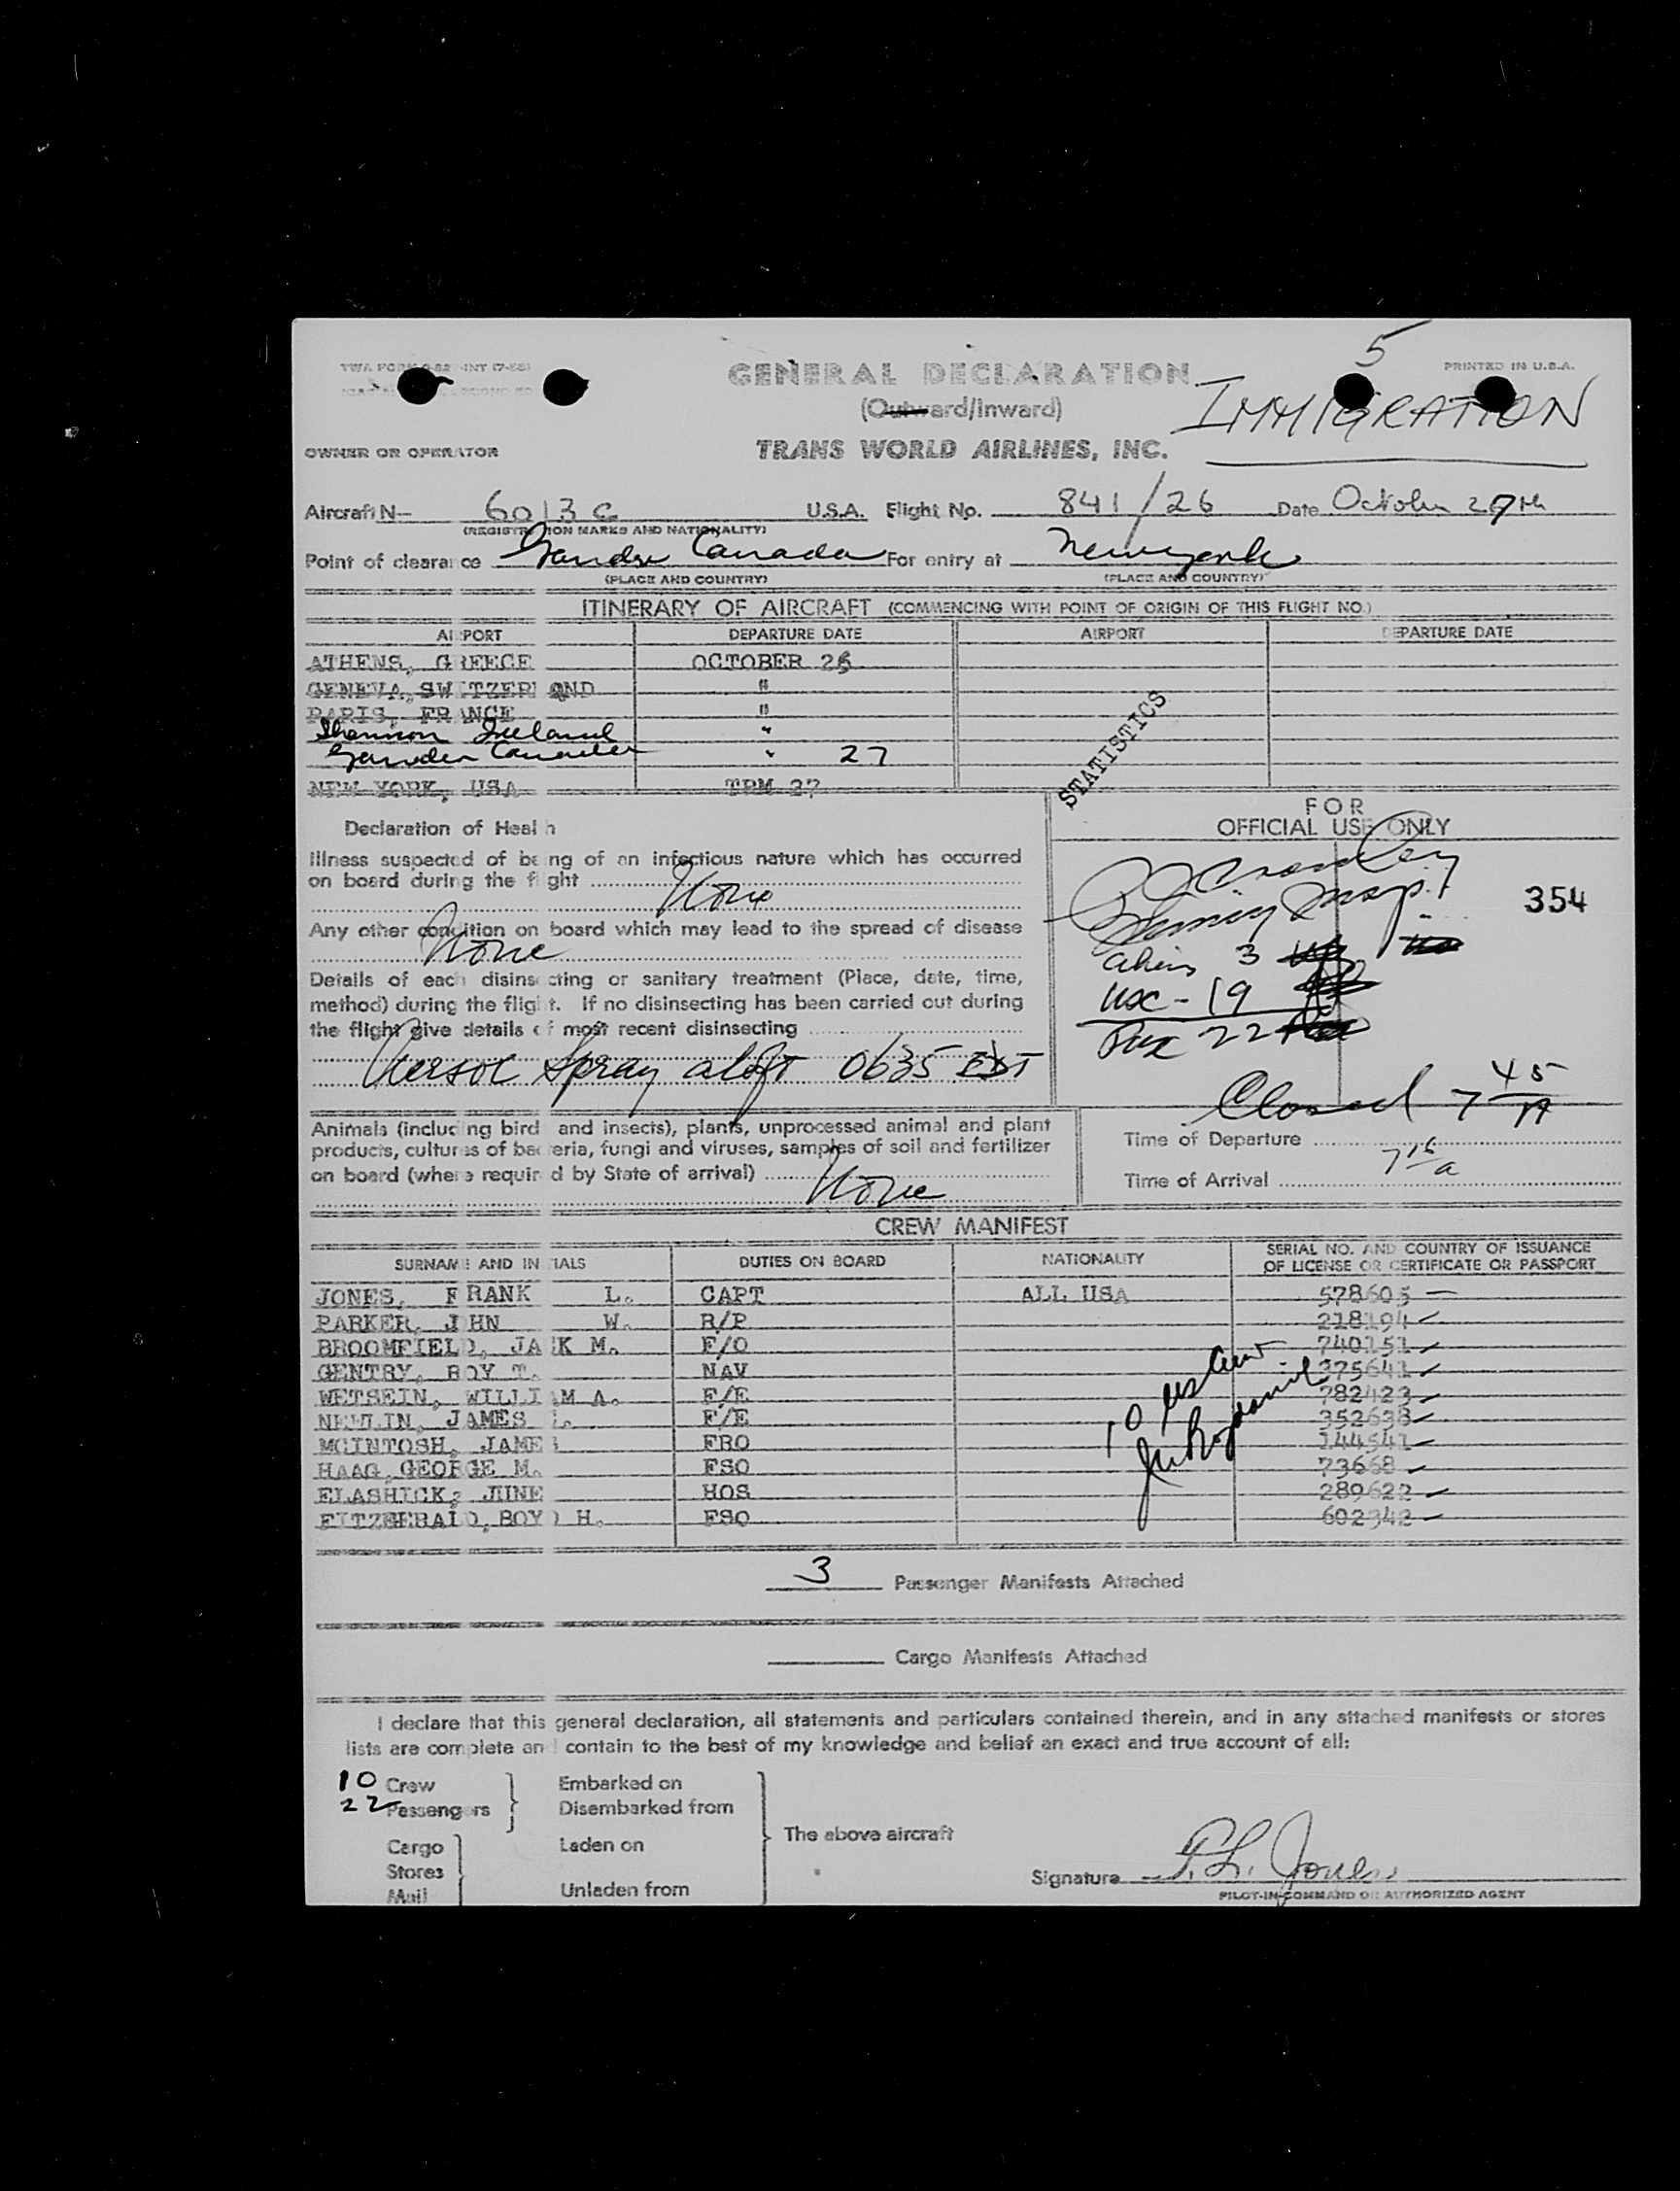 5
PRINTED IN U.S.A.
GENERAL DECLARATION
(Outward/Inward)
IMMIGRATION
OWNER OR OPERATOR
TRANS WORLD AIRLINES, INC.
Aircraft N- 6013C U.S.A. Flight No. 841/26 Date October 27th
(REGISTRATION MARKS AND NATIONALITY)
Point of clearance Gander Canada For entry at New york
(PLACE AND COUNTRY) (PLACE AND COUNTRY)
ITINERARY OF AIRCRAFT (COMMENCING WITH POINT OF ORIGIN OF THIS FLIGHT NO.)
AIRPORT DEPARTURE DATE AIRPORT DEPARTURE DATE
ATHENS, GREECE OCTOBER 26
GENEVA, SWITZERLAND "
PARIS, FRANCE "
Shannon Ireland "
Gander Canada " 27
NEW YORK, USA TRM 27
STATISTICS
FOR
OFFICIAL USE ONLY
Declaration of Health
Illness suspected of being of an infectious nature which has occurred
on board during the flight
None
354
Any other condition on board which may lead to the spread of disease
None
Aliens 3
USC - 19
Pax 22
Details of each disinsecting or sanitary treatment (Place, date, time,
method) during the flight. If no disinsecting has been carried out during
the flight give details of most recent disinsecting
Aersol Spray aloft 0635 EST
Closed 7 45 A
Animals (including birds and insects), plants, unprocessed animal and plant
products, cultures of bacteria, fungi and viruses, samples of soil and fertilizer
on board (where required by State of arrival)
None
Time of Departure
Time of Arrival 7 15 a
CREW MANIFEST
SURNAME AND INITIALS DUTIES ON BOARD NATIONALITY SERIAL NO. AND COUNTRY OF ISSUANCE
OF LICENSE OR CERTIFICATE OR PASSPORT
JONES, FRANK L. CAPT ALL USA 578605
PARKER, JHN W. R/P 218194
BROOMFIELD, JACK M. F/O 740151
GENTRY, ROY T. NAV 375641
WETSEIN, WILLIAM A. F/E 782423
NEWLIN, JAMES L. F/E 352638
MCINTOSH, JAMES FRO 144541
HAAG, GEORGE M. FSO 73668
ELASHICK, JUNE HOS 289622
FITZGERALD, BOYD H. FSO 602342
10 US Crew
3 Passenger Manifests Attached
Cargo Manifests Attached
I declare that this general declaration, all statements and particulars contained therein, and in any attached manifests or stores
lists are complete and contain to the best of my knowledge and belief an exact and true account of all:
10 Crew Embarked on
22 Passengers Disembarked from
The above aircraft
Cargo Laden on
Stores
Mail Unladen from
Signature F. L. Jones
PILOT-IN-COMMAND OR AUTHORIZED AGENT